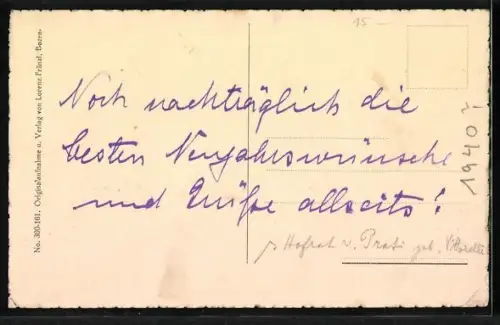 15 -
Noch nachträglich die
besten Neujahrswünsche
und Grüße allseits!
1940?
Hofrat v. Prati geb.
No. 300-161. Originalaufnahme u. Verlag von Lorenz Fränzl, Bozen.